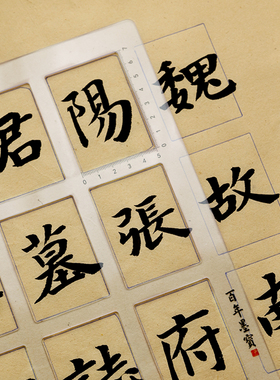 魏故南
陽張府
君墓誌
百年墨寶
0 1 2 3 4 5
1 2 3 4 5 6 7